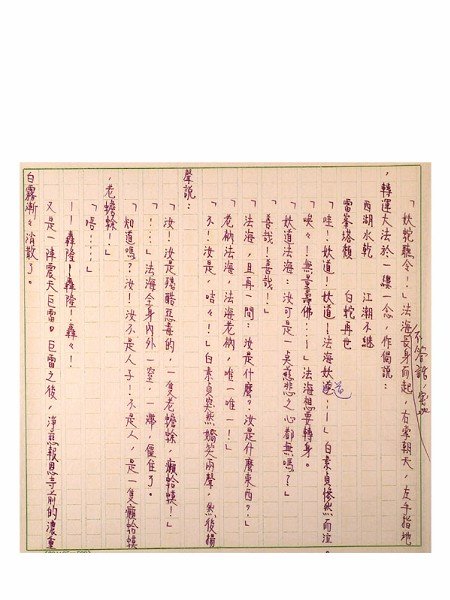 「妖蛇聽令！」法海長身而起，右掌朝天，左手指地
，轉運大法於一縷一念，作偈說：
西湖水乾　江潮不繼
雷峯塔頹　白蛇再世
「哇！妖道！妖道！法海妖道──！」白素貞慘然而泣。
「唉々！無量壽佛──！」法海想要轉身。
「妖道法海：汝可是一臾慈悲之心都無嗎？」
「善哉！善哉！」
「法海，且再一問：汝是什麼？汝是什麼東西？」
「老衲法海，法海老衲，唯一唯一！」
「不！汝是，咕々！」白素貞突然嬌笑兩聲，然後揚
聲說：
「汝！汝是殘酷惡毒的，一隻老蟾蜍，癩蛤蟆！」
「！……」法海全身內外一空，一滯，僵住了。
「知道嗎？汝！汝不是人子！不是人，是一隻癩蛤蟆
，老蟾蜍！」
「唔……」
──轟隆！轟隆！轟々！
又是一陣震天巨雷。巨雷之後，淨慈報恩寺前的濃重
白霧漸々消散了。